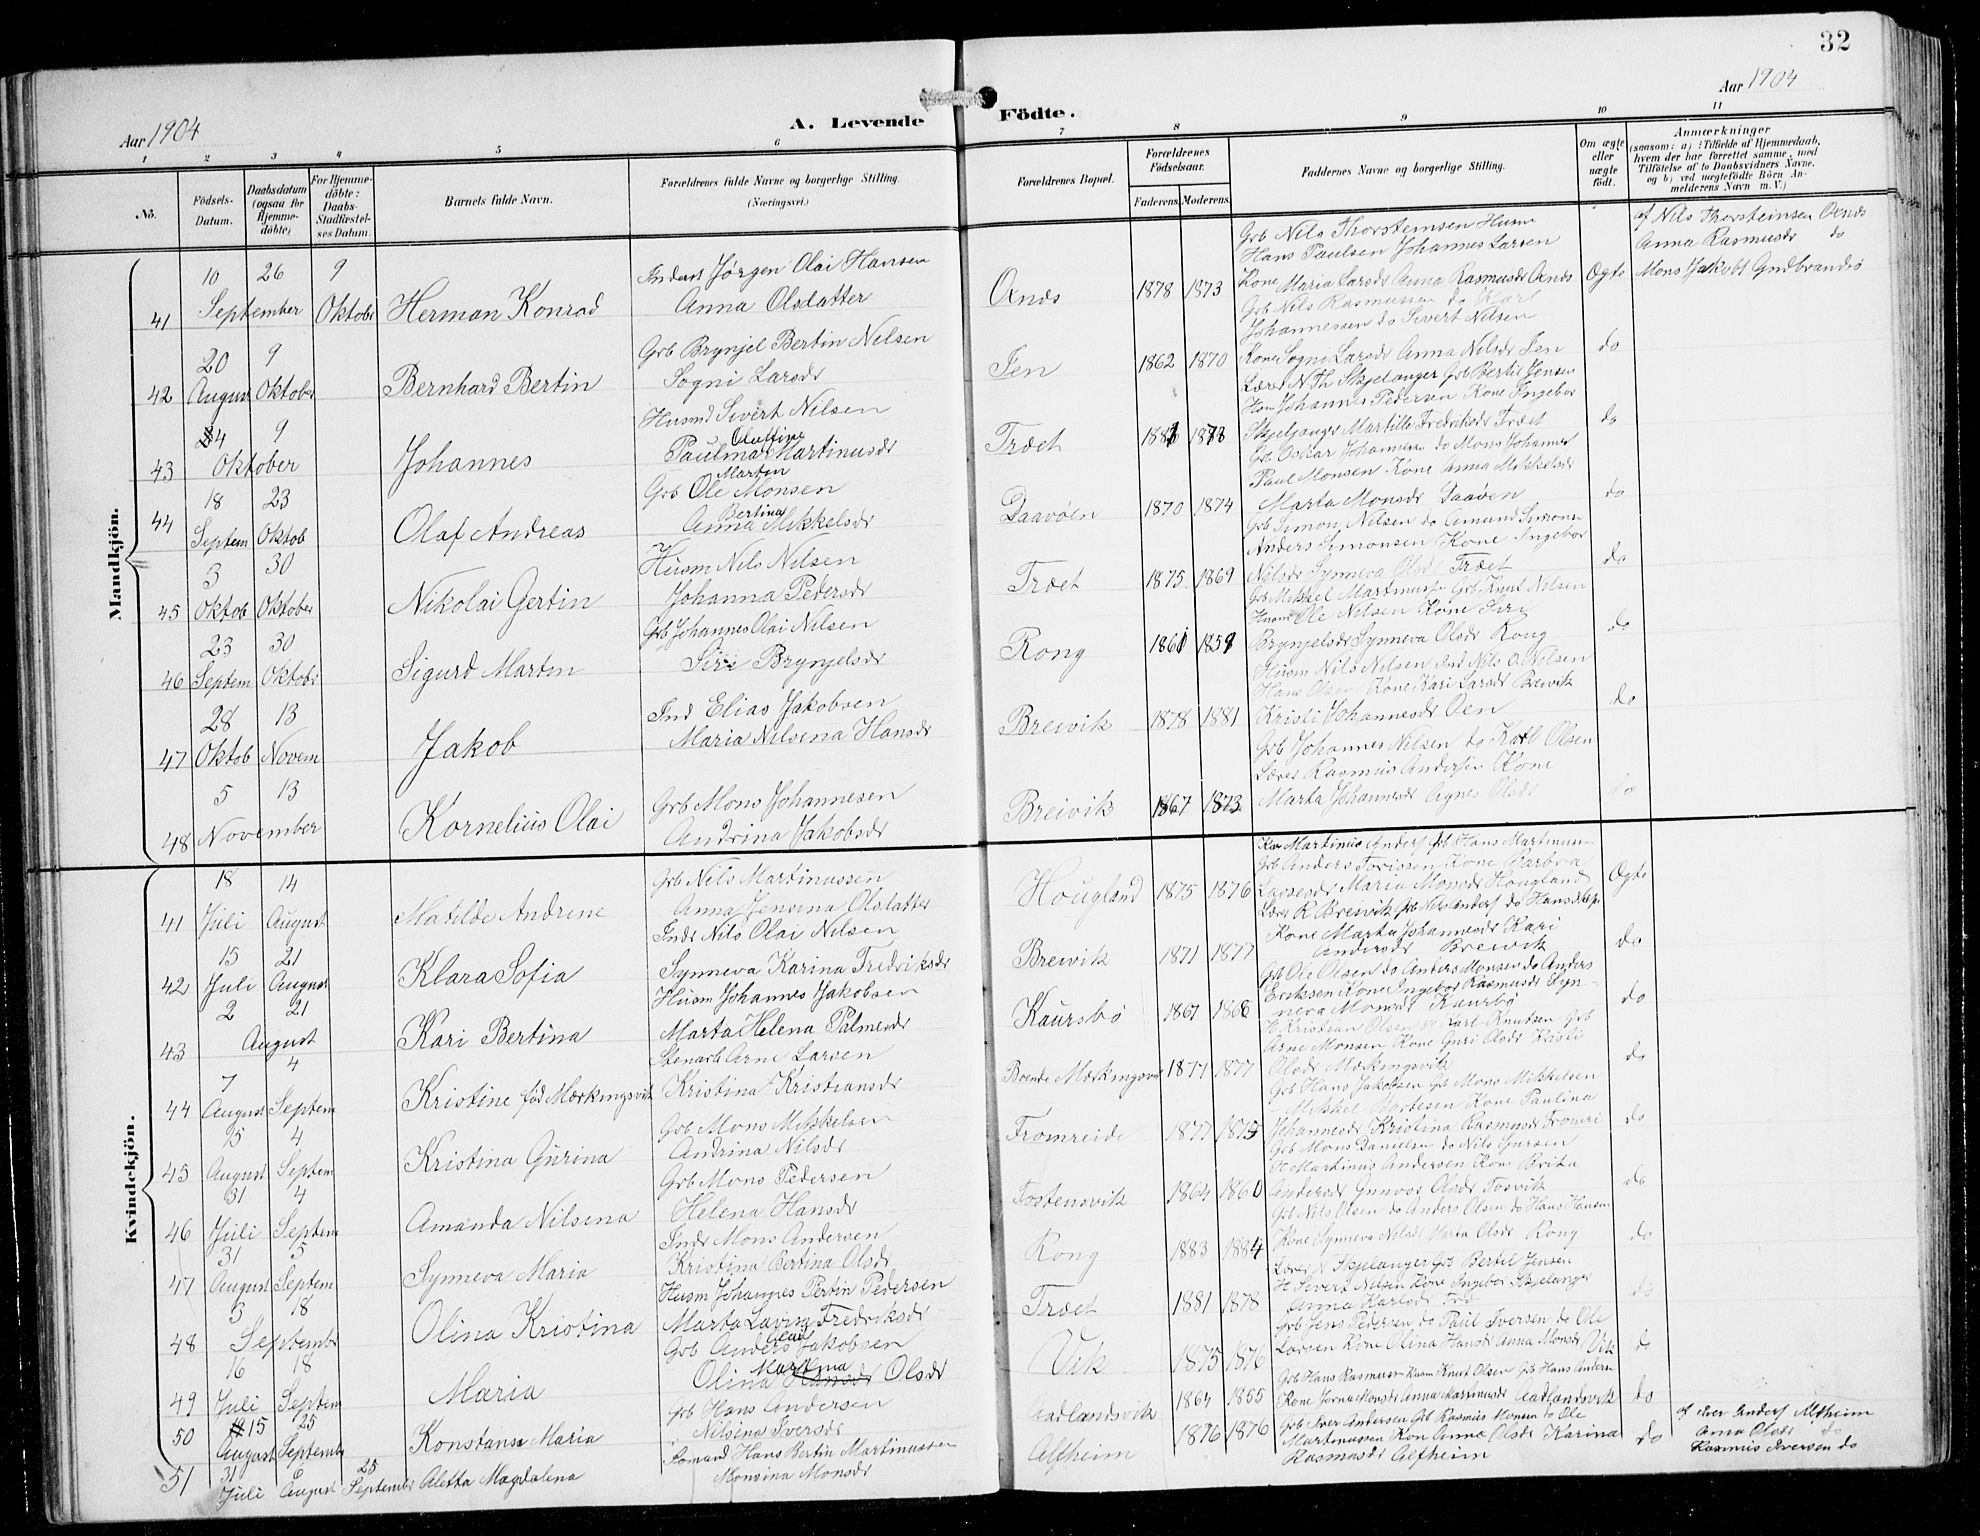 32
Aar 1904
A. Levende Födte.
Aar 1904
1 2 3 4 5 6 7 8 9 10 11
No.
Födsels-Datum.
Daabsdatum (ogsaa for Hjemme-döbte)
For Hjemme-döbte: Daabs-Stadfæstel-ses Datum.
Barnets fulde Navn.
Forældrenes fulde Navne og borgerlige Stilling.
(Næringsvei.)
Forældrenes Bopæl.
Forældrenes Födselsaar.
Faderens. Moderens.
Faddernes Navne og borgerlige Stilling.
Om ægte eller uægte födt.
Anmærkninger
(saasom: a) i Tilfælde af Hjemmedaab,
hvem der har forrettet samme, med
Tilföielse af to Daabsvidners Navne.
og b) ved uægtefödte Börn An-
melderens Navn m. V.)
Mandkjön.
41 10 September 26 9 Oktober Herman Konrad
Jørgen Olai Hansen
Anna Olsdatter
Øxnes 1878 1873
Grb Nils Thorsteinsen Husm
Hans Paulsen Johannes Larsen
Kone Maria Larsdr Anna Rasmusdr
Ægte
af Nils Thorsteinsen
Anna Rasmusdr do
Mons Jakobs Gudbrands
42 20 August 9 Oktober Bernhard Bertin
Grb Brynjel Bertin Nilsen
Sogni Larsdr
1862 1870
Grb Nils Rasmussen do Karl
Johannessen do Sivert Nilsen
Kone Sogni Larsdr Anna Nilsdr
do
43 4 9 Oktober Johannes
Husmd Sivert Nilsen
Paulina Oluffine Martinusdr
Træet
Lærer N Th Skjelanger Grb Bertil Jensen
Hsm Johannes Pedersen Kone Ingebor
Skjelanger Martille Fredriksdr Træet
do
44 18 Septem 23 Oktob Olaf Andreas
Grb Ole Marten Monsen
Anna Bertina Mikkelsdr
Daavøen 1870 1874
Grb Oskar Johannesen do Mons Johannes
Paul Monsen Kone Anna Mikkelsdr
Marta Monsdr Daavøen
do
45 3 Oktob 30 Oktober Nikolai Gertin
Husm Nils Nilsen
Johanna Pedersdr
Træet 1875 1869
Grb Simon Nilsen do Amund Simons
Anders Simonsen Kone Ingebor
Nilsdr Synneva Olsd Træet
do
46 23 Septem 30 Oktobr Sigurd Marten
Grb Johannes Olai Nilsen
Siri Brynjelsdr
Rong
Grb Mikkel Martinusen Grb Knut Nilsen
Husm Ole Nilsen Kone Siri
Brynjelsdr Synneva Olsdr Rong
do
47 28 Oktob 13 Novem Jakob
Ind Elias Jakobsen
Maria Nilsina Hansdr
Breivik 1878 1881
Husm Nils Nilsen Ind Nils O Nilsen
Hans Olsen Kone Kari Larsdr Breivik
Kristi Johannesdr Oen
do
48 5 13 November Kornelius Olai
Grb Mons Johannesen
Andrina Jakobsdr
Breivik 1867 1873
Grb Johannes Nilsen do Karl Olsen
Lærer Rasmus Andersen Kone
Marta Johannesdr Agnes Olsdr
do
Kvindekjön.
41 18 Juli 14 August Matilde Andrine
Grb Nils Martinussen
Anna Jensina Olsdatter
Hougland 1875 1876
Martinus Anders Grb Hans Martinussen
Grb Anders Torissen Kone Barbra
Larsesdr Maria Monsdr Hougland
Ægte
42 15 Juli 21 August Klara Sofia
Indr Nils Olai Nilsen
Synneva Karina Fredriksdr
Breivik 1871 1877
Lærer R Breivik Grb Nils Anders do Hans
Kone Marta Johannesdr Kari
Andersdr Breivik
do
43 2 21 August Kari Bertina
Husm Johannes Jakobsen
Marta Helena Palmesdr
Kaursbø 1867
Grb Ole Olsen do Anders Monsen do Anders
Eriksen Kone Ingebor Rasmusdr Syn-
neva Monsdr Kaursbø
do
44 7 August 4 Septem Kristine fød Mærkingsvik
Stenarb Arne Larsen
Kristina Kristiansdr
Boende Mærkingsvik 1877 1877
Kristian Olsen do Karl Knutsen Grb
Arne Monsen Kone Guri Olsdr Kristi
Olsdr Mærkingsvik
do
45 15 August 4 Septem Kristina Gurina
Grb Mons Mikkelsen
Andrina Nilsdr
Fromreide 1877
Grb Hans Jakobsen Grb Mons Mikkelsen
Mikkel Kone Paulina
Johannesdr Kristina Rasmusdr Fromrei
do
46 31 Juli 4 Septem Amanda Nilsena
Grb Mons Pedersen
Helena Hansdr
Tostensvik 1864 1860
Grb Mons Danielsen do Nils
H Martinus Andersen Kone Brita
Andersdr Gunvor Olsdr Tosvik
do
47 31 August 5 Septem Synneva Maria
Indr Mons Andersen
Kristina Bertina Olsdr
Rong 1883 1884
Grb Nils Olsen do Anders Olsen do Hans Hansen
Kone Synneva Nilsdr Marta Olsdr Rong
do
48 3 18 Septembr Olina Kristina
Husm Johannes Pertin Pedersen
Marta Lavina Fredriksdr
Træet 1881 1878
Lærer N Skjelanger Grb Bertel Jensen
H Sivert Nilsen Kone Ingebor Skjelanger
Anna Karlsdr
do
49 16 Juli 18 Septem Maria
Grb Anders Jakobsen
Olina Martina Hansdr Olsdr
Vik 1875 1876
Grb Jens Pedersen do Paul Iversen do Ole
Larsen Kone Olina Hansdr Anna Monsdr Vik
do
50 15 August 25 Septembr Konstanse Maria
Grb Hans Andersen
Nilsina Iversdr
Aadlandsvik 1864 1855
Grb Hans Rasmussen Husm Knut Olsen Grb Hans Anders
Kone Jorna Monsdr Anna Martinusdr Aadlandsvik
do
51 31 Juli 6 August 25 Septembr Aletta Magdalena
Sømand Hans Bertin Martinussen
Monsina Monsdr
Alfheim 1876 1876
Grb Iver Andersen Grb Rasmus Monsen do Ole
Martinussen Kon Anna Olsdr Karina
Rasmusdr Alfheim
do
af Iver Anders Alfheim
Anna Olsdr do
Rasmus Iversen do